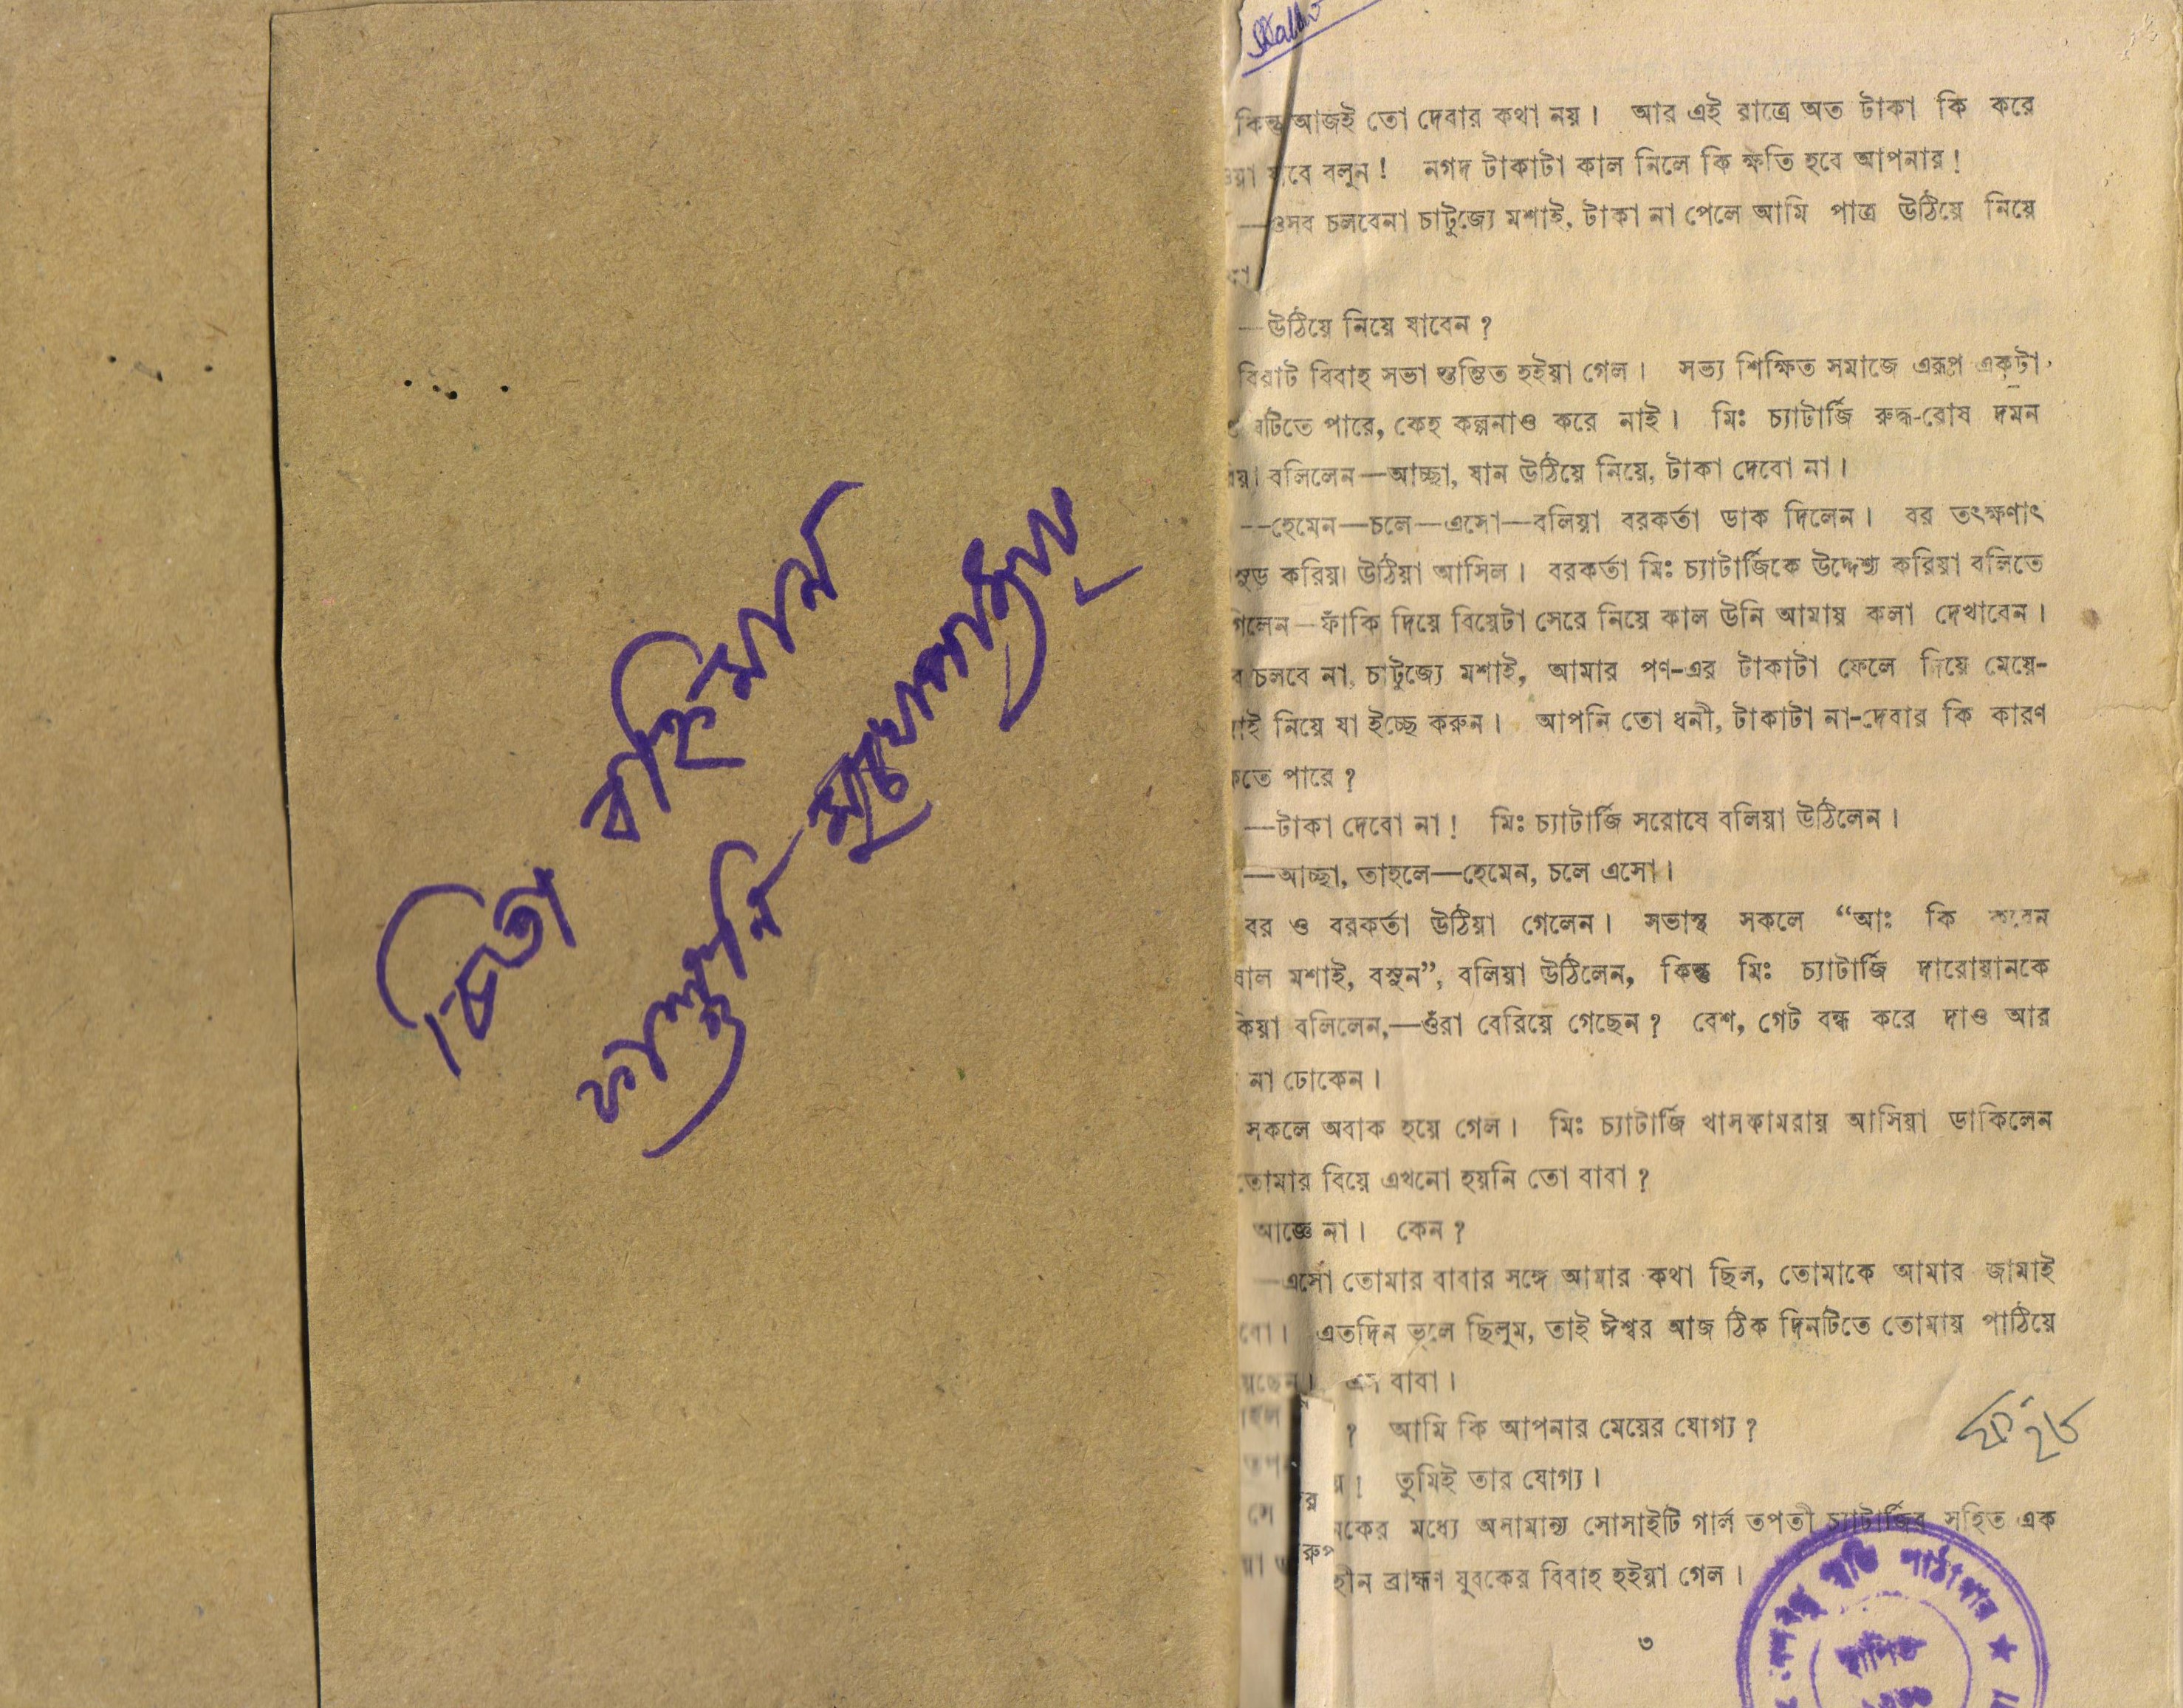 চিতা বহ্নিমান
ফাল্গুনি মুখোপাধ্যায়
কিন্তু আজই তো দেবার কথা নয়। আর এই রাত্রে অত টাকা কি করে
যাবে বলুন! নগদ টাকাটা কাল নিলে কি ক্ষতি হবে আপনার!
—ওসব চলবেনা চাটুজ্যে মশাই, টাকা না পেলে আমি পাত্র উঠিয়ে নিয়ে
—উঠিয়ে নিয়ে যাবেন?
বিরাট বিবাহ সভা স্তম্ভিত হইয়া গেল। সভ্য শিক্ষিত সমাজে এরূপ একটা
ঘটিতে পারে, কেহ কল্পনাও করে নাই। মিঃ চ্যাটার্জি রুদ্ধ-রোষ দমন
বলিলেন—আচ্ছা, যান উঠিয়ে নিয়ে, টাকা দেবো না।
—হেমেন—চলে—এসো—বলিয়া বরকর্তা ডাক দিলেন। বর তৎক্ষণাৎ
করিয়া উঠিয়া আসিল। বরকর্তা মিঃ চ্যাটার্জিকে উদ্দেশ্য করিয়া বলিতে
গিলেন—ফাঁকি দিয়ে বিয়েটা সেরে নিয়ে কাল উনি আমায় কলা দেখাবেন।
ব চলবে না চাটুজ্যে মশাই, আমার পণ-এর টাকাটা ফেলে দিয়ে মেয়ে-
াই নিয়ে যা ইচ্ছে করুন। আপনি তো ধনী, টাকাটা না-দেবার কি কারণ
কতে পারে?
—টাকা দেবো না! মিঃ চ্যাটার্জি সরোষে বলিয়া উঠিলেন।
—আচ্ছা, তাহলে—হেমেন, চলে এসো।
বর ও বরকর্তা উঠিয়া গেলেন। সভাস্থ সকলে “আঃ কি করেন
ষাল মশাই, বসুন”, বলিয়া উঠিলেন, কিন্তু মিঃ চ্যাটার্জি দারোয়ানকে
কিয়া বলিলেন,—ওঁরা বেরিয়ে গেছেন? বেশ, গেট বন্ধ করে দাও আর
না ঢোকেন।
সকলে অবাক হয়ে গেল। মিঃ চ্যাটার্জি খাসকামরায় আসিয়া ডাকিলেন
তোমার বিয়ে এখনো হয়নি তো বাবা?
আজ্ঞে না। কেন?
—এসো তোমার বাবার সঙ্গে আমার কথা ছিল, তোমাকে আমার জামাই
বো। এতদিন ভুলে ছিলুম, তাই ঈশ্বর আজ ঠিক দিনটিতে তোমায় পাঠিয়ে
এস বাবা।
? আমি কি আপনার মেয়ের যোগ্য?
! তুমিই তার যোগ্য।
নকের মধ্যে অসামান্য সোসাইটি গার্ল তপতী চ্যাটার্জির সহিত এক
হীন ব্রাহ্মণ যুবকের বিবাহ হইয়া গেল।
৩
স্মৃতি পাঠাগার ★
স্থাপিত